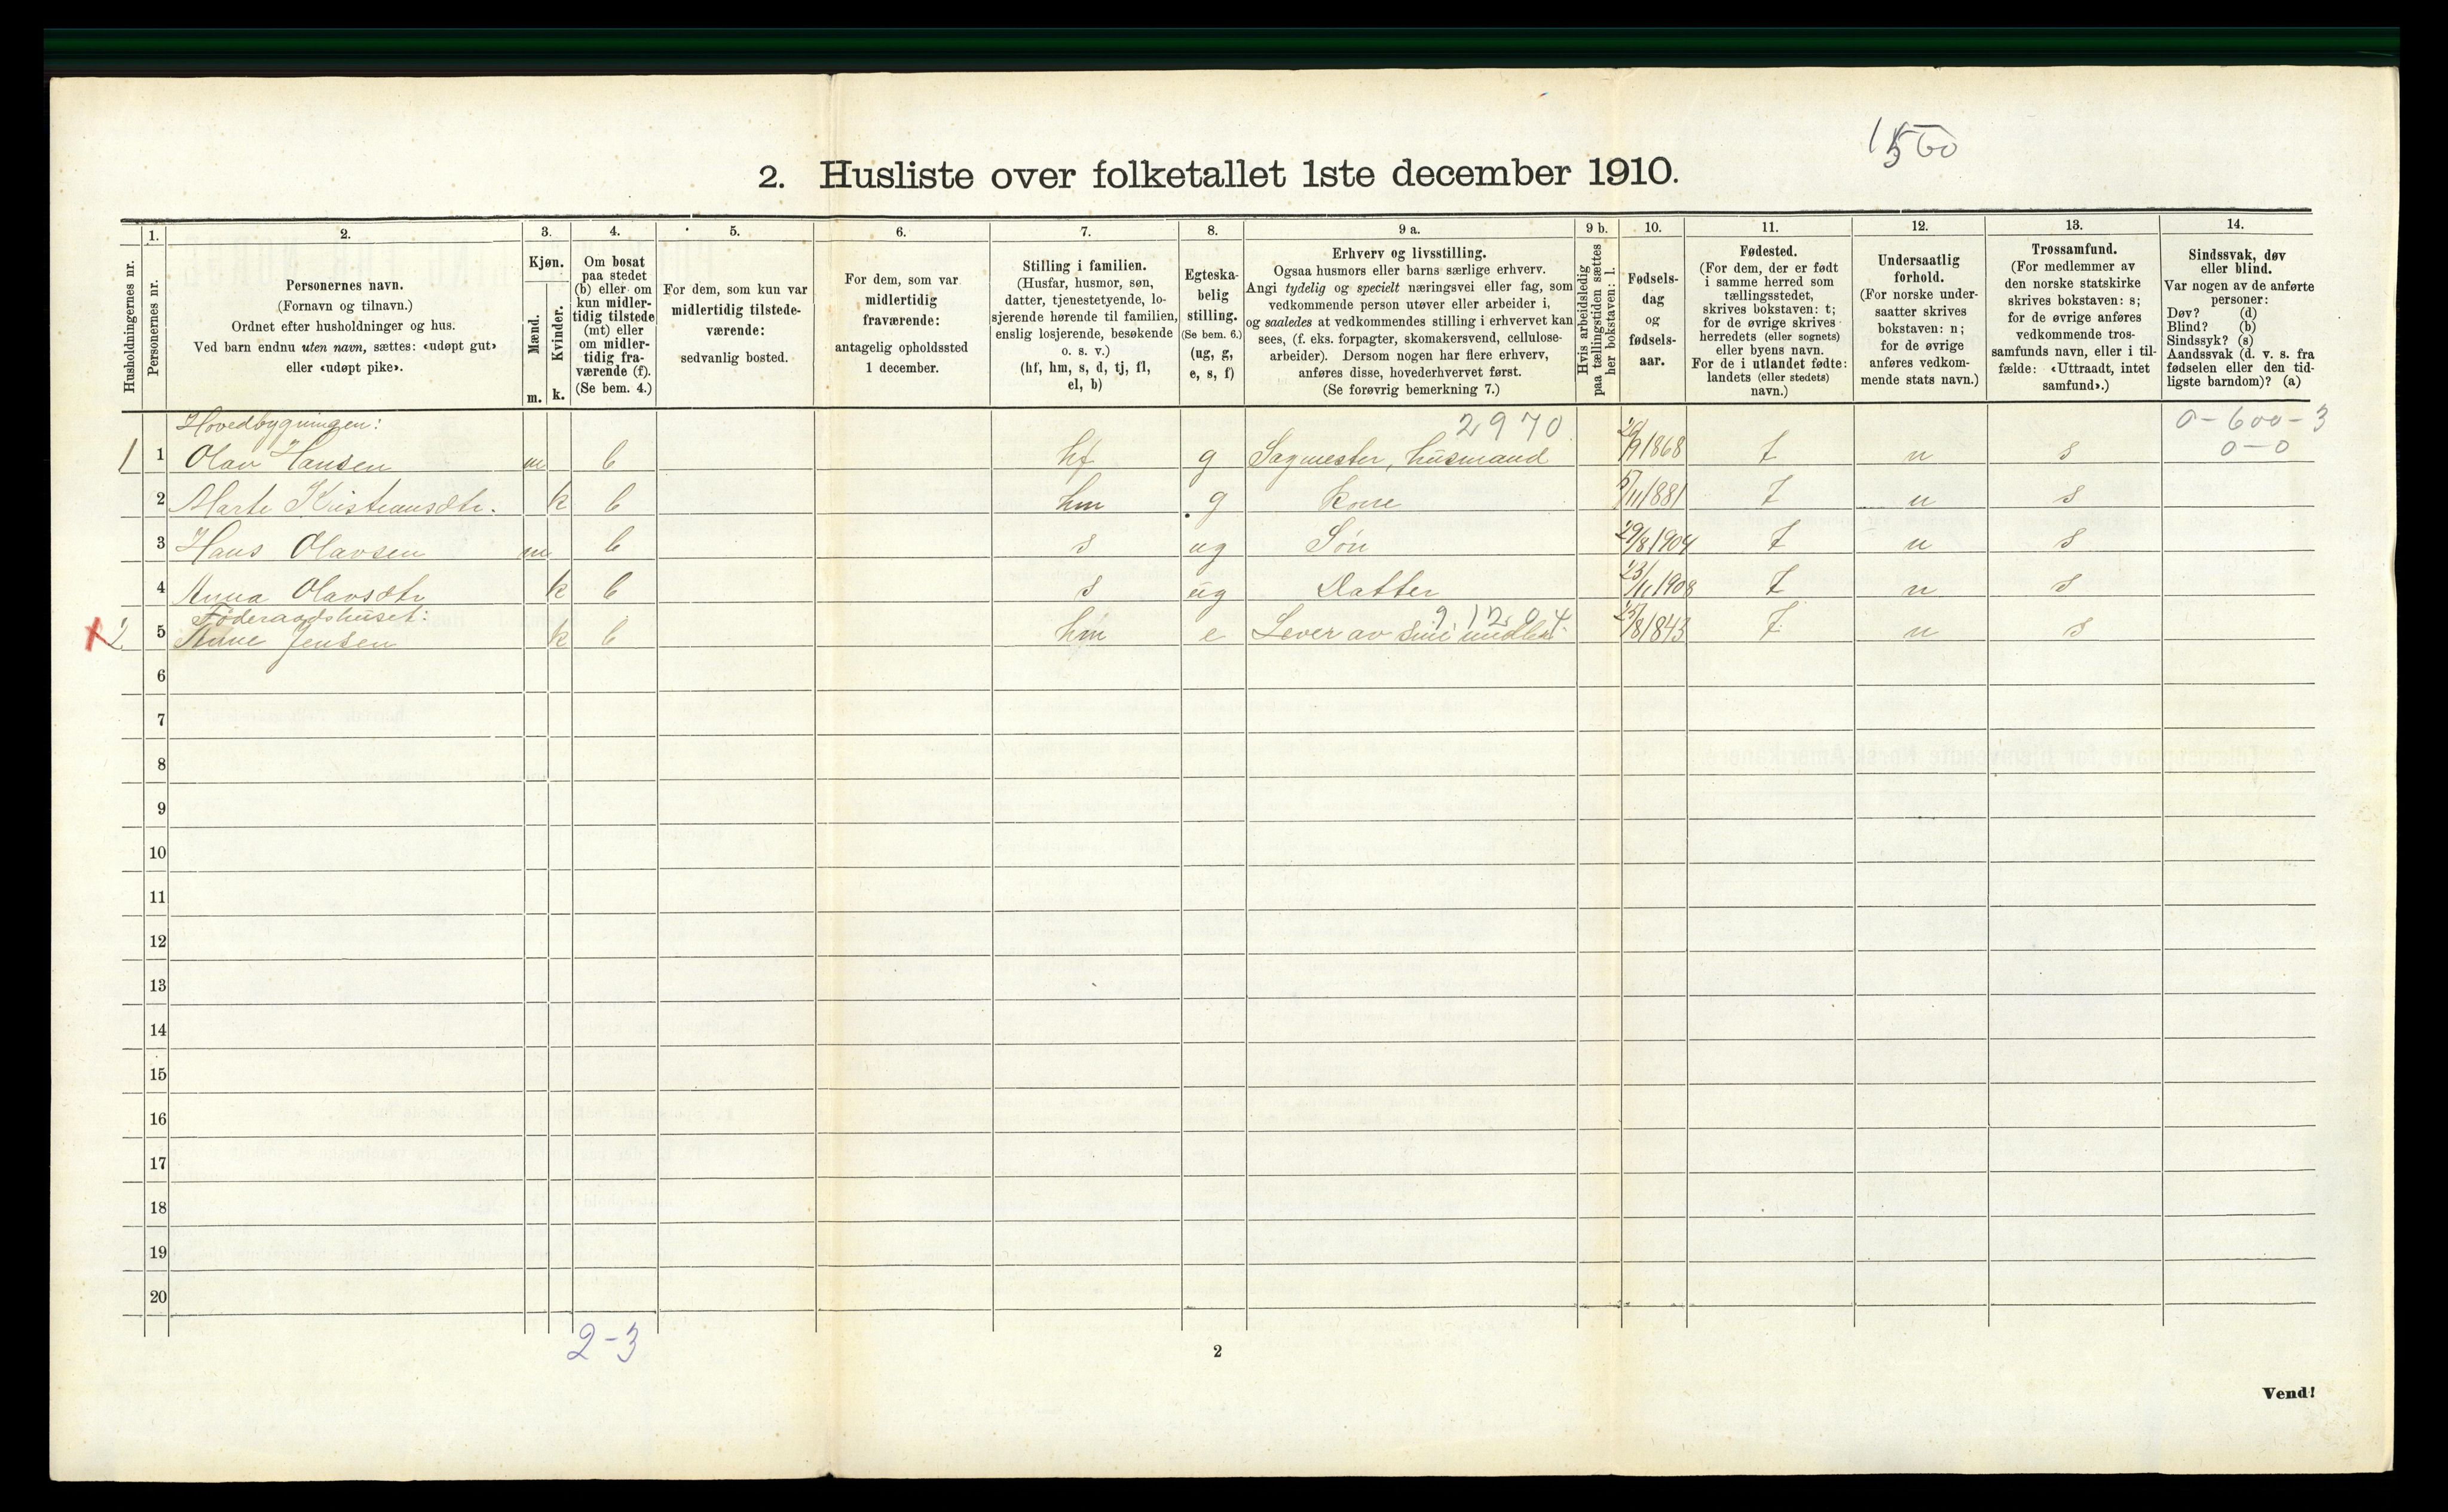 1560
2. Husliste over folketallet 1ste december 1910.
Husholdningernes nr.
1.
Personernes nr.
2.
Personernes navn.
(Fornavn og tilnavn.)
Ordnet efter husholdninger og hus.
Ved barn endnu uten navn, sættes: «udøpt gut»
eller «udøpt pike».
3.
Kjøn.
Mænd.
Kvinder.
m. k.
4.
Om bosat
paa stedet
(b) eller om
kun midler-
tidig tilstede
(mt) eller
om midler-
tidig fra-
værende (f).
(Se bem. 4.)
5.
For dem, som kun var
midlertidig tilstede-
værende:
sedvanlig bosted.
6.
For dem, som var
midlertidig
fraværende:
antagelig opholdssted
1 december.
7.
Stilling i familien.
(Husfar, husmor, søn,
datter, tjenestetyende, lo-
sjerende hørende til familien,
enslig losjerende, besøkende
o. s. v.)
(hf, hm, s, d, tj, fl,
el, b)
8.
Egteska-
belig
stilling.
(Se bem. 6.)
(ug, g,
e, s, f)
9 a.
Erhverv og livsstilling.
Ogsaa husmors eller barns særlige erhverv.
Angi tydelig og specielt næringsvei eller fag, som
vedkommende person utøver eller arbeider i,
og saaledes at vedkommendes stilling i erhvervet kan
sees, (f. eks. forpagter, skomakersvend, cellulose-
arbeider). Dersom nogen har flere erhverv,
anføres disse, hovederhvervet først.
(Se forøvrig bemerkning 7.)
9 b.
Hvis arbeidsledig
paa tællingstiden sættes
her bokstaven: l.
10.
Fødsels-
dag
og
fødsels-
aar.
11.
Fødested.
(For dem, der er født
i samme herred som
tællingsstedet,
skrives bokstaven: t;
for de øvrige skrives
herredets (eller sognets)
eller byens navn.
For de i utlandet fødte:
landets (eller stedets)
navn.)
12.
Undersaatlig
forhold.
(For norske under-
saatter skrives
bokstaven: n;
for de øvrige
anføres vedkom-
mende stats navn.)
13.
Trossamfund.
(For medlemmer av
den norske statskirke
skrives bokstaven: s;
for de øvrige anføres
vedkommende tros-
samfunds navn, eller i til-
fælde: «Uttraadt, intet
samfund».)
14.
Sindssvak, døv
eller blind.
Var nogen av de anførte
personer:
Døv? (d)
Blind? (b)
Sindssyk? (s)
Aandssvak (d. v. s. fra
fødselen eller den tid-
ligste barndom)? (a)
Hovedbygningen: 2970 0-600-3
1 1 Olav Hansen m b hf g Sagmester, husmand /9 1868 t n s 0-0
2 Marte Kristiansdtr. k b hm g Kone /11 1881 t n s
3 Hans Olavsen m b s ug Søn 29/8 1904 t n s
4 Anna Olavsdtr k b s ug Datter 23/11 1908 t n s
Føderaadshuset: 9.12.04
2 5 Anne Jensen k b hm e Lever av sine midler. 25/8 1843 t n s
6
7
8
9
10
11
12
13
14
15
16
17
18
19
20
2-3
2
Vend!